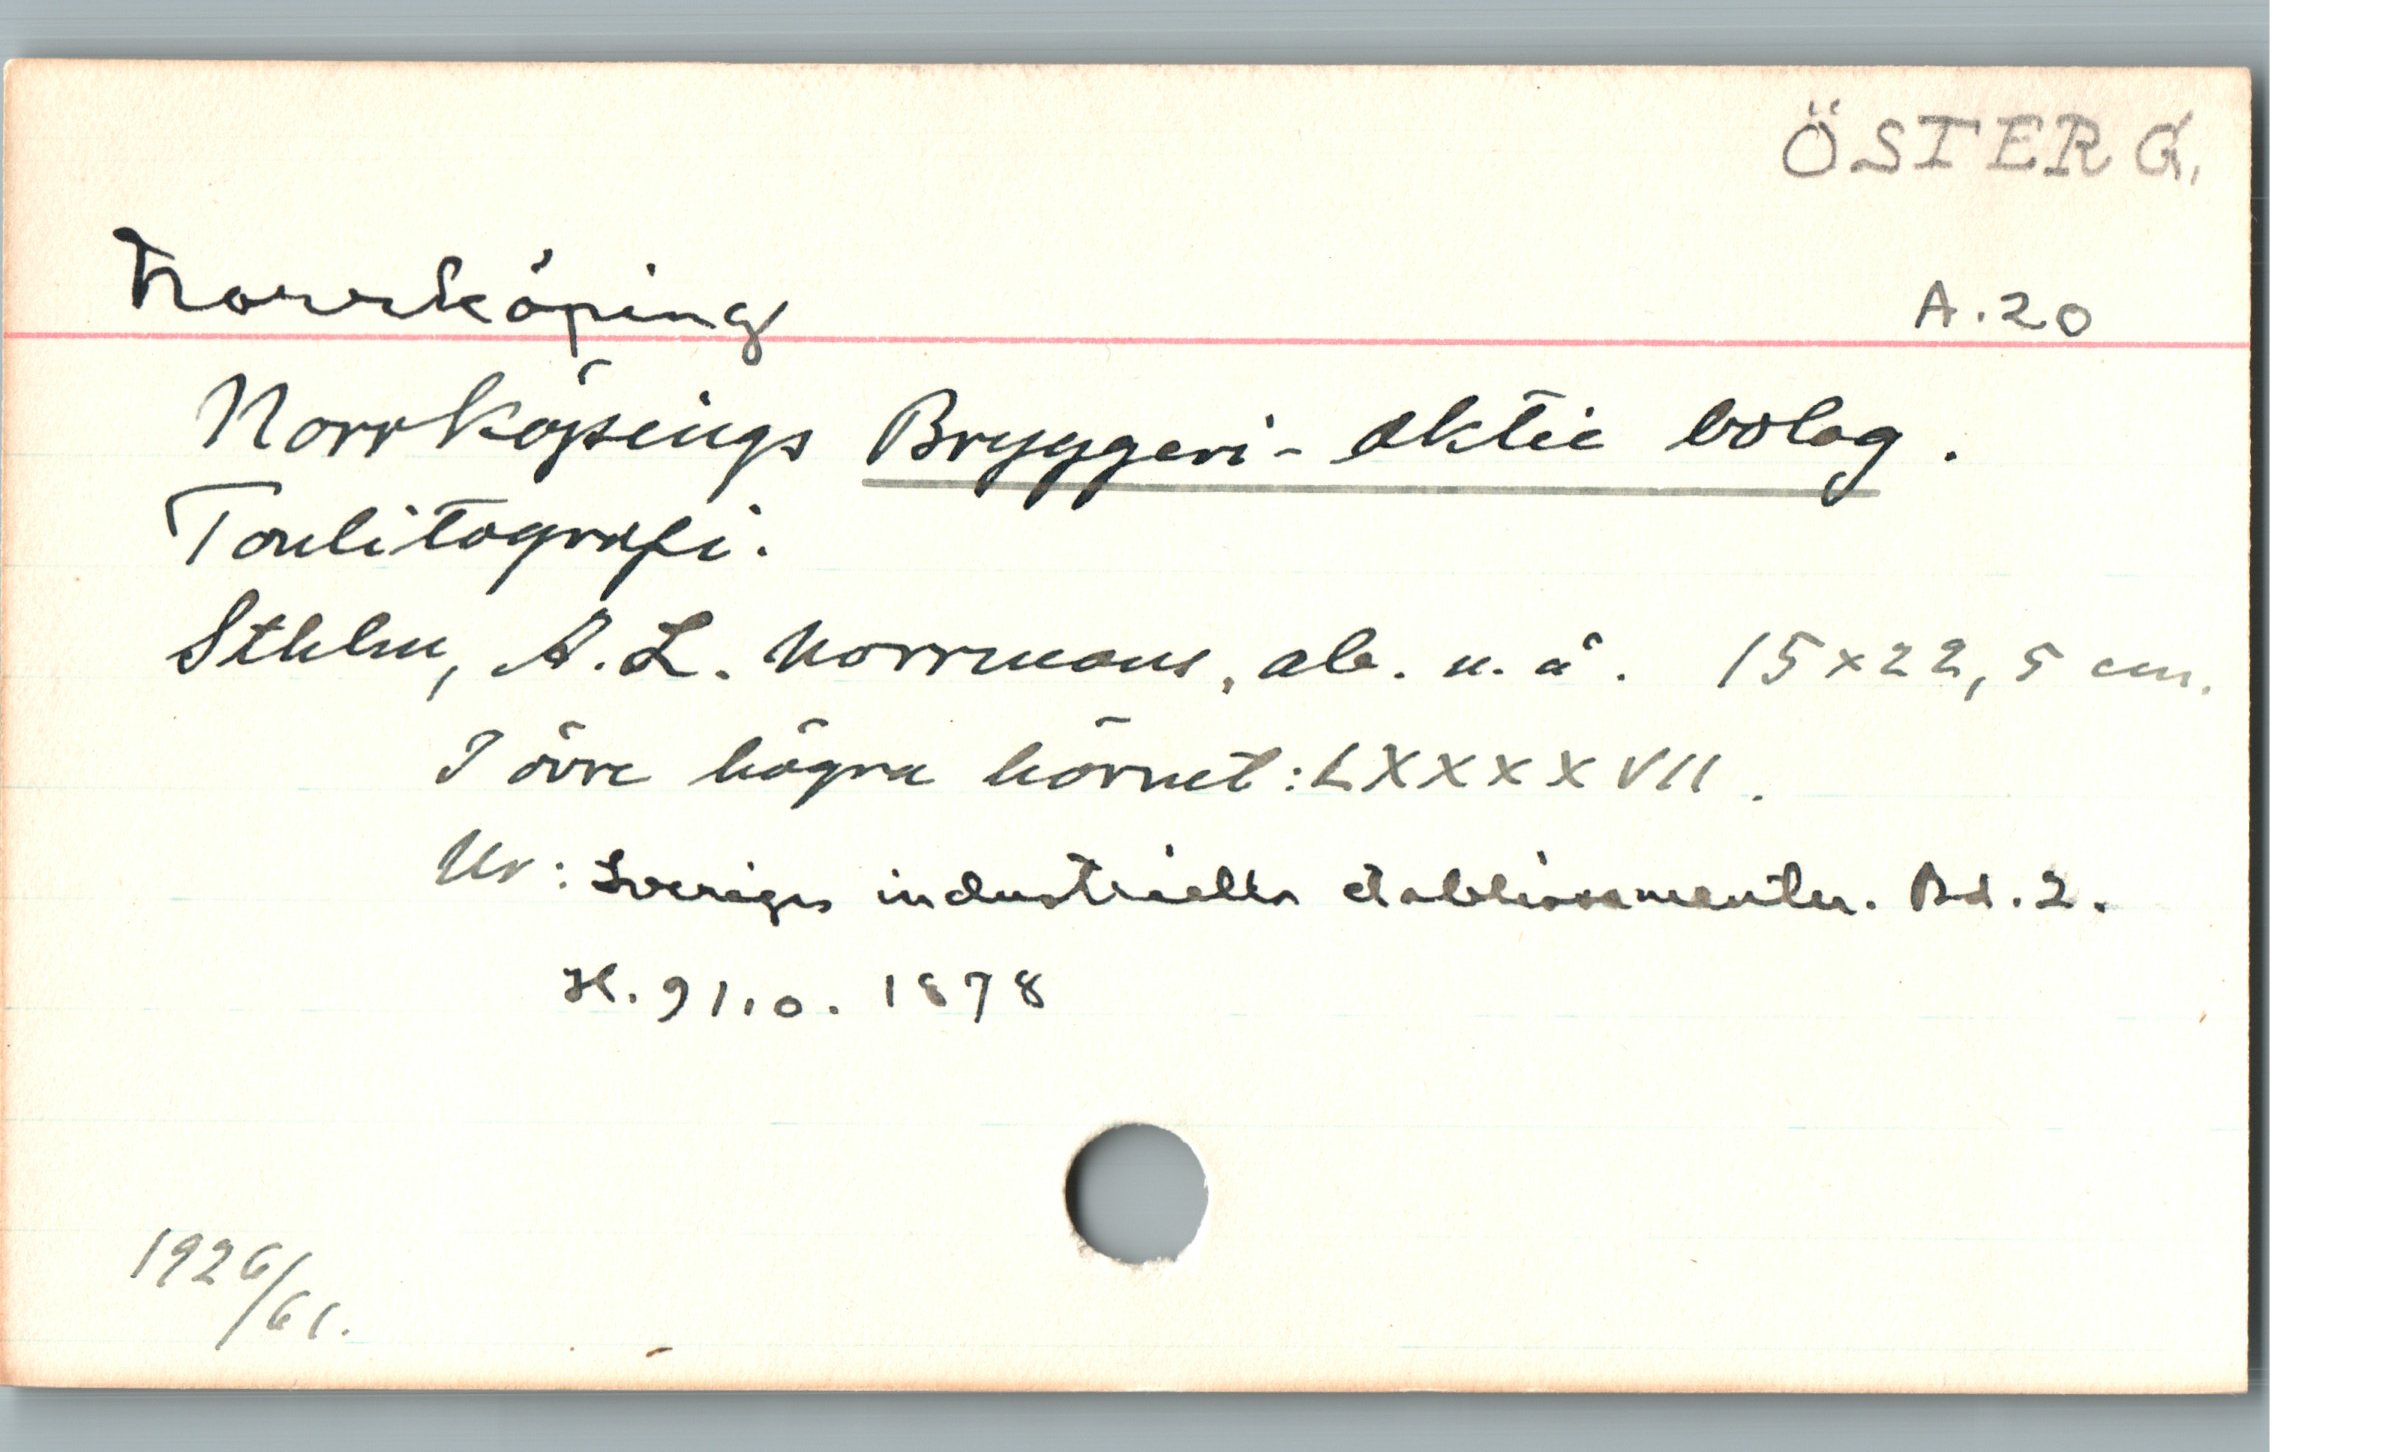 ÖSTERG.
Norrköping A.20
Norrköpings Bryggeri-aktie bolag.
Tonlitografi.
Sthlm, A.L. Norrmans, ab. u.å. 15x22,5 cm.
I övre högra hörnet: LXXXXVII.
Ur: Sveriges industriella etablissementer. Bd. 2.
H. 9/10. 1878
1926/61.